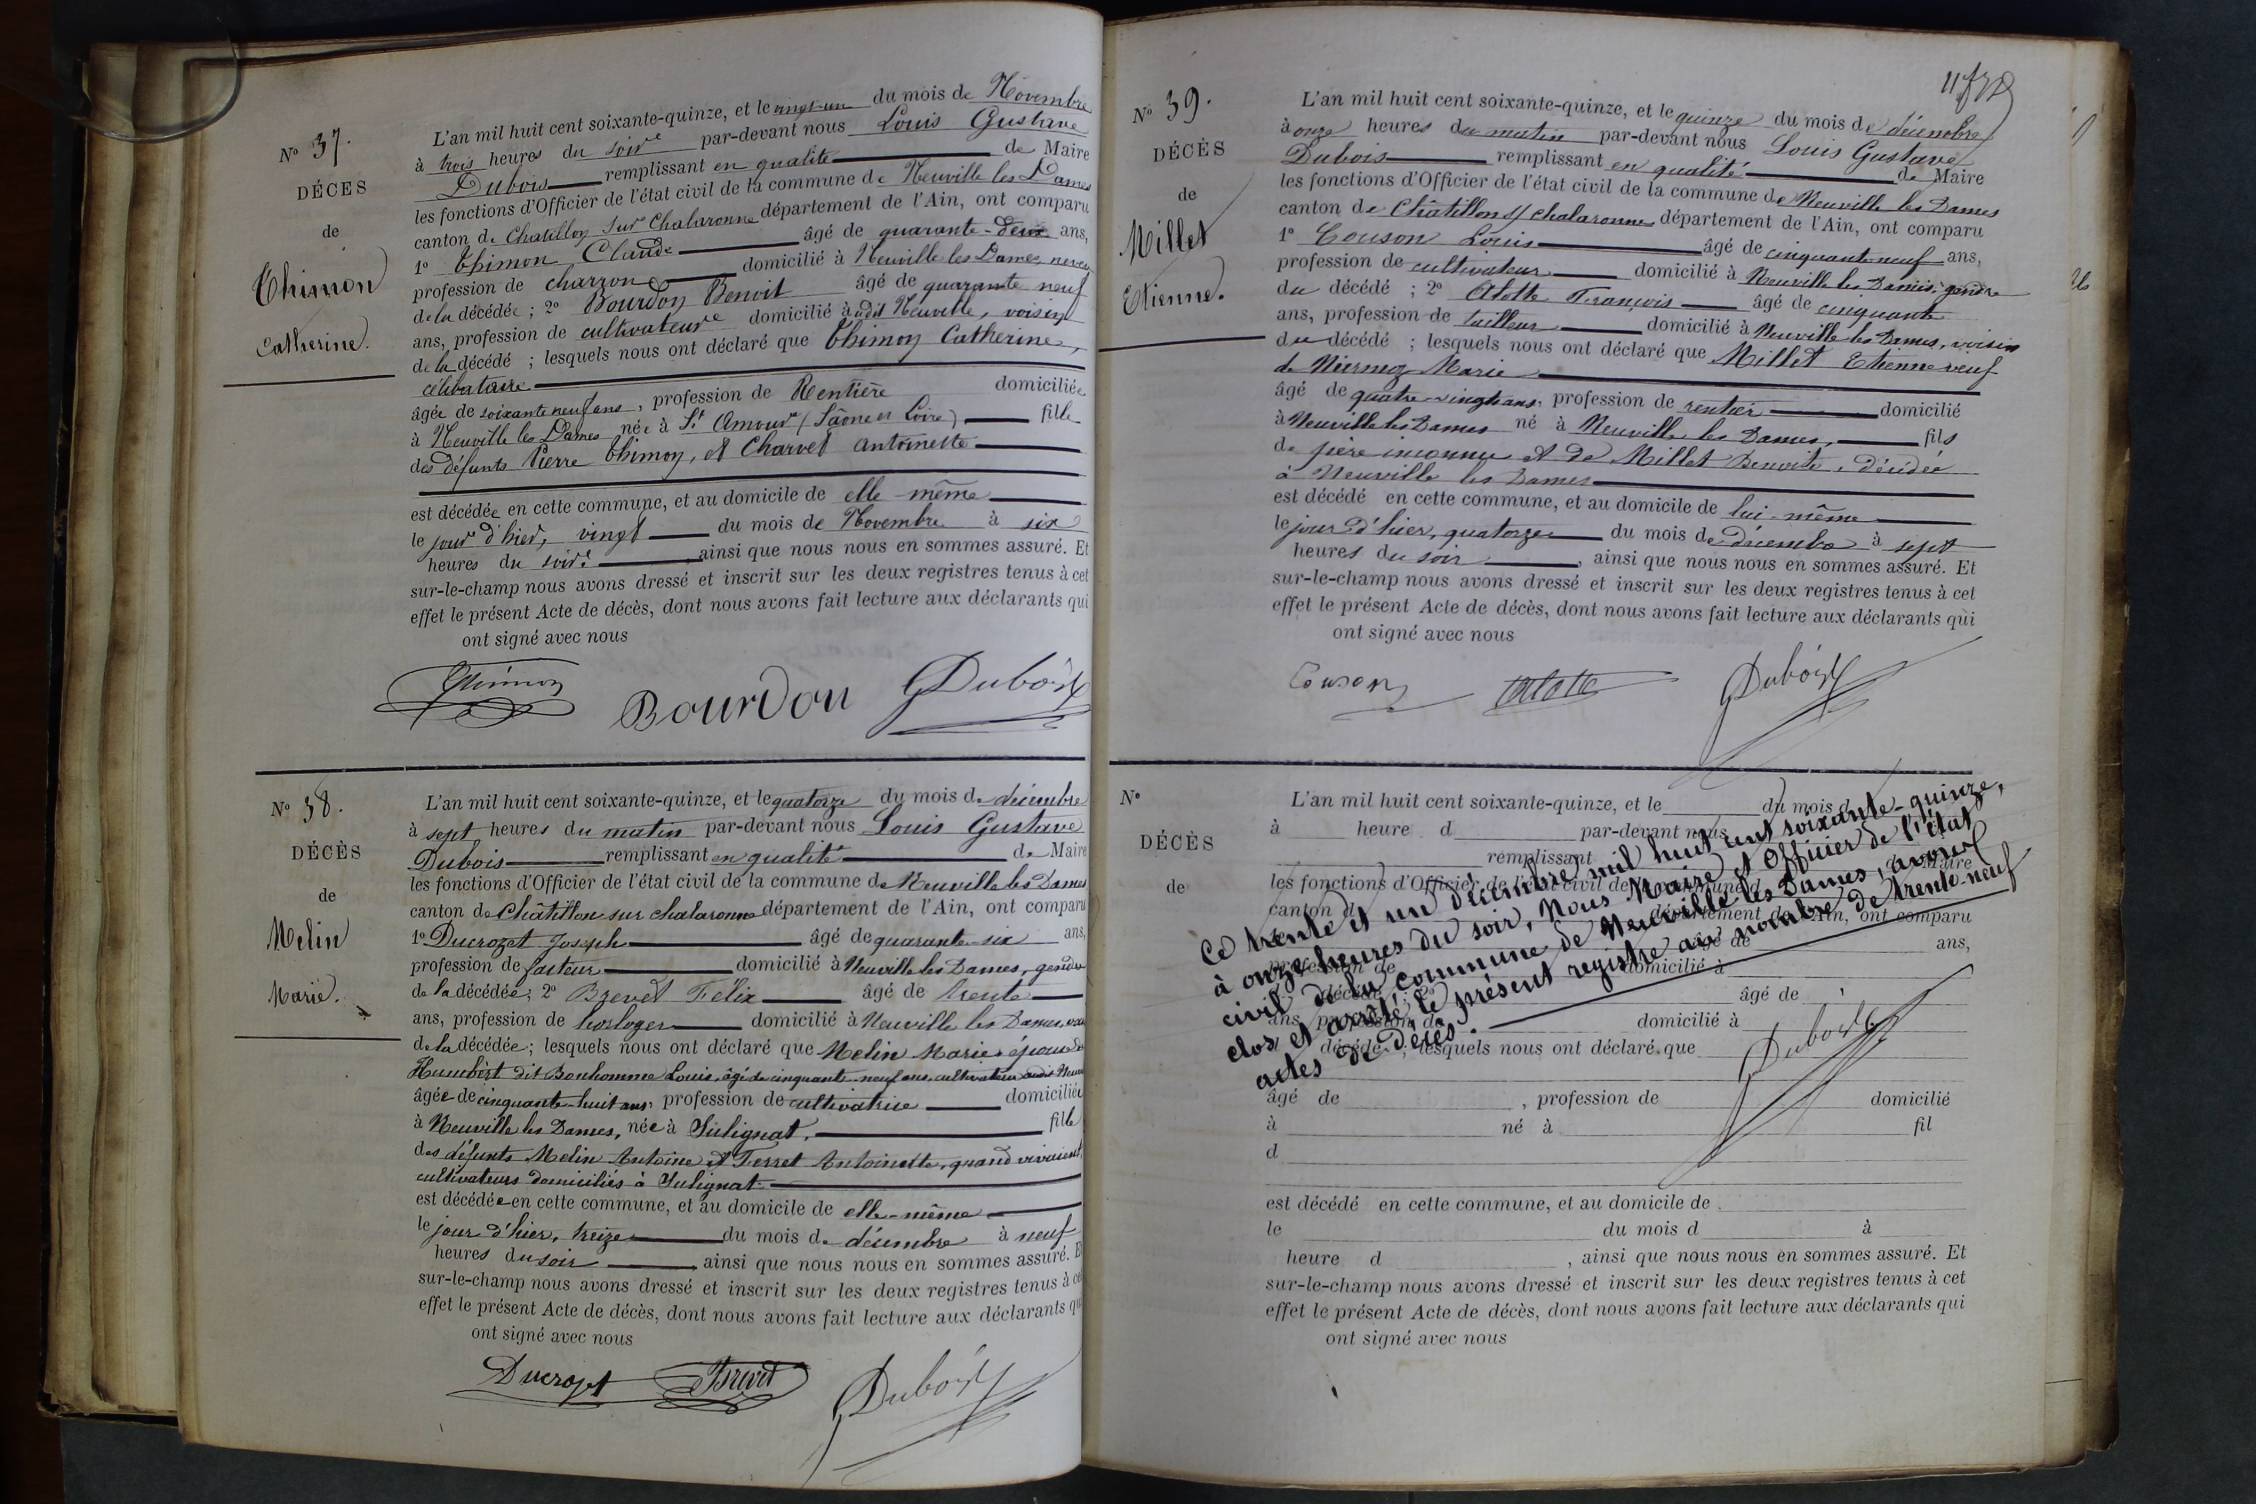 Nº 37.
DÉCES
de
Thimon
Catherine.
L'an mil huit cent soixante-quinze, et le vingt-un du mois de Novembre
à trois heures du soir par-devant nous Louis Gustave
Dubois remplissant en qualité de Maire
les fonctions d'Officier de l'état civil de la commune de Neuville les Dames
canton de Chatillon sur Chalaronne département de l'Ain, ont comparu
1º Thimon Claude âgé de quarante-deux ans,
profession de charron domicilié à Neuville les Dames, neveu
de la décédée ; 2º Bourdon Benoit âgé de quarante neuf
ans, profession de cultivateur domicilié à Neuville, voisin
de la décédé ; lesquels nous ont déclaré que Thimon Catherine,
célibataire
âgée de soixante neuf ans, profession de Rentière domiciliée
à Neuville les Dames née à St Amour (Saône et Loire) fille
des défunts Pierre Thimon, et Charvet Antoinette
est décédée en cette commune, et au domicile de elle-même
le jour d'hier, vingt du mois de Novembre à six
heures du soir. ainsi que nous nous en sommes assuré. Et
sur-le-champ nous avons dressé et inscrit sur les deux registres tenus à cet
effet le présent Acte de décès, dont nous avons fait lecture aux déclarants qui
ont signé avec nous
Thimon Bourdon GDubois
Nº 38.
DÉCÈS
de
Melin
Marie.
L'an mil huit cent soixante-quinze, et le quatorze du mois de décembre
à sept heures du matin par-devant nous Louis Gustave
Dubois remplissant en qualité de Maire
les fonctions d'Officier de l'état civil de la commune de Neuville les Dames
canton de Châtillon sur chalaronne département de l'Ain, ont comparu
1º Ducrozet Joseph âgé de quarante-six ans,
profession de facteur domicilié à Neuville les Dames, gendre
de la décédée; 2º Brevet Félix âgé de trente
ans, profession de horloger domicilié à Neuville les Dames,
de la décédée; lesquels nous ont déclaré que Melin Marie, épouse de
Humbert dit Bonhomme Louis, âgé de cinquante-neuf ans, cultivateur audit Neuville
âgée de cinquante-huit ans, profession de cultivatrice domiciliée
à Neuville les Dames, née à Sulignat, fille
des défunts Melin Antoine et Ferret Antoinette, quand vivaient
cultivateurs domiciliés à Sulignat
est décédée en cette commune, et au domicile de elle-même
le jour d'hier, treize du mois de décembre à neuf
heures du soir ainsi que nous nous en sommes assuré. Et
sur-le-champ nous avons dressé et inscrit sur les deux registres tenus à cet
effet le présent Acte de décès, dont nous avons fait lecture aux déclarants qui
ont signé avec nous
Ducrozet Brevet GDubois
Nº 39.
DÉCÈS
de
Millet
Etienne.
L'an mil huit cent soixante-quinze, et le quinze du mois de décembre
à onze heures du matin par-devant nous Louis Gustave
Dubois remplissant en qualité de Maire
les fonctions d'Officier de l'état civil de la commune de Neuville les Dames
canton de Châtillon s/ chalaronne département de l'Ain, ont comparu
1º Couson Louis âgé de cinquante-neuf ans,
profession de cultivateur domicilié à Neuville les Dames, gendre
du décédé ; 2º Alotte François âgé de cinquante
ans, profession de tailleur domicilié à Neuville les Dames, voisin
du décédé ; lesquels nous ont déclaré que Millet Etienne veuf
de Niermoz Marie
âgé de quatre-vingts ans, profession de rentier domicilié
à Neuville les Dames né à Neuville les Dames, fils
de père inconnu et de Millet Benoite, décédée
à Neuville les Dames
est décédé en cette commune, et au domicile de lui-même
le jour d'hier, quatorze du mois de décembre à sept
heures du soir, ainsi que nous nous en sommes assuré. Et
sur-le-champ nous avons dressé et inscrit sur les deux registres tenus à cet
effet le présent Acte de décès, dont nous avons fait lecture aux déclarants qui
ont signé avec nous
Couson Alotte GDubois
Nº
DÉCÈS
de
L'an mil huit cent soixante-quinze, et le du mois d
à heure d par-devant nous
remplissant Maire
les fonctions d'Officier de l'état civil de la commune d
canton d département de l'Ain, ont comparu
âgé de ans,
profession de domicilié à
décédé ; 2º âgé de
ans, profession de domicilié à
décédé ; lesquels nous ont déclaré que
âgé de , profession de domicilié
à né à fil
d
est décédé en cette commune, et au domicile de
le du mois d à
heure d , ainsi que nous nous en sommes assuré. Et
sur-le-champ nous avons dressé et inscrit sur les deux registres tenus à cet
effet le présent Acte de décès, dont nous avons fait lecture aux déclarants qui
ont signé avec nous
Ce trente et un décembre mil huit cent soixante-quinze,
à onze heures du soir, Nous Maire et Officier de l'état
civil de la commune de Neuville les Dames, avons
clos et arrêté le présent registre au nombre de trente-neuf
actes de décès.
GDubois